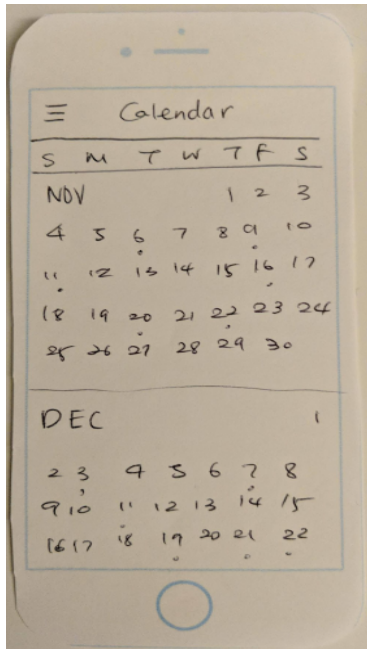 Calendar
S M T W T F S
NOV 1 2 3
4 5 6 7 8 9 10
11 12 13 14 15 16 17
18 19 20 21 22 23 24
25 26 27 28 29 30
DEC 1
2 3 4 5 6 7 8
9 10 11 12 13 14 15
16 17 18 19 20 21 22